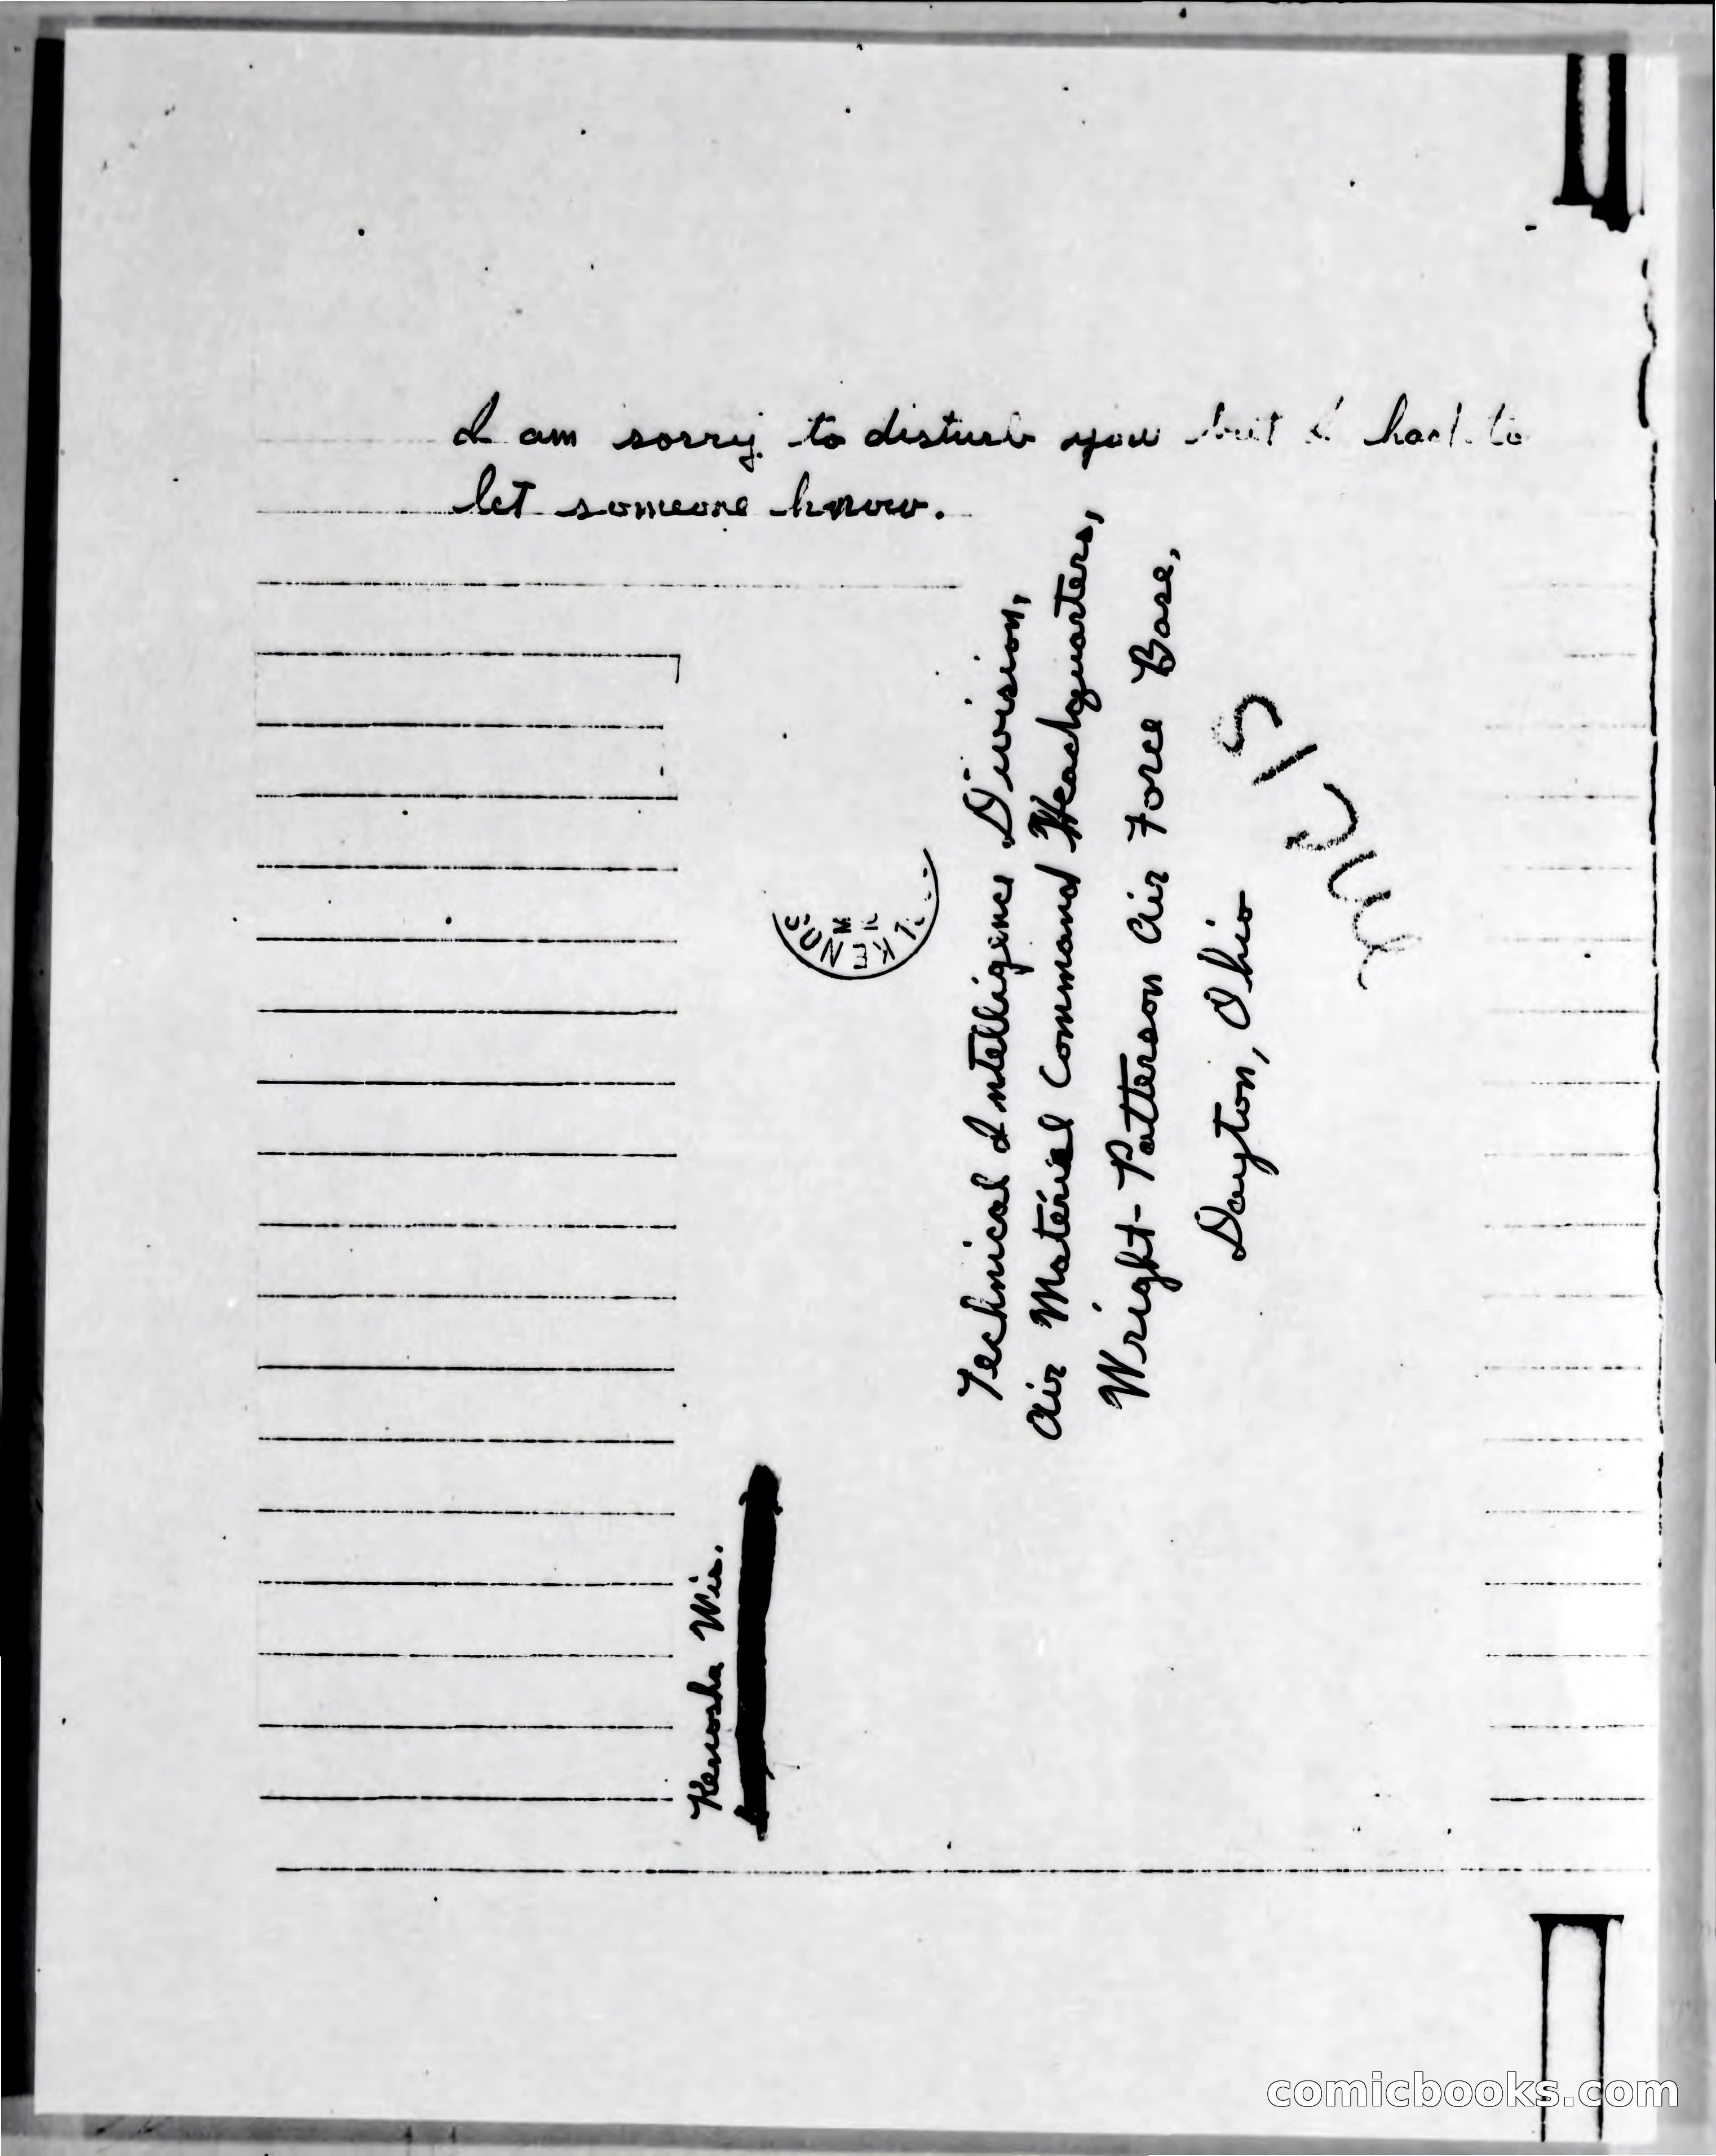 I am sorry to disturb you but I had to
let someone know.
Kenosha Wis.
KENOS
Technical Intelligence Division,
Air Material Command Headquarters,
Wright-Patterson Air Force Base,
Dayton, Ohio
comicbooks.com